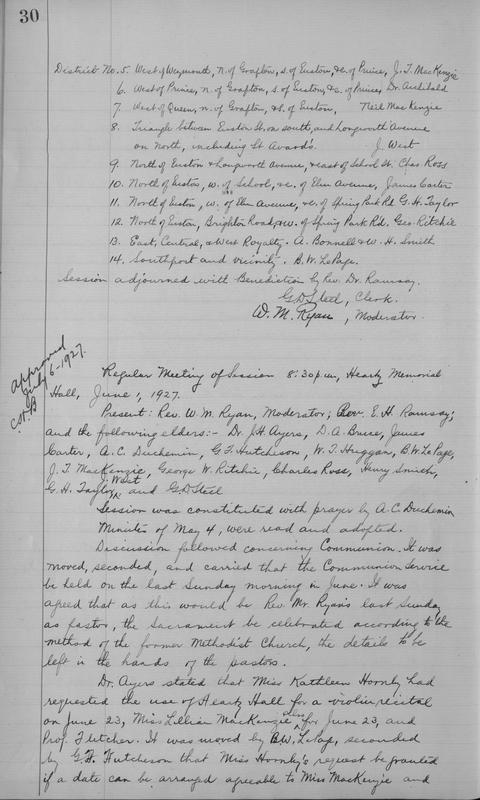 30
District No. 5. West of Weymouth, n. of Grafton, s. of Euston, & e. of Prince, J. T. MacKenzie
6. West of Prince, n. of Grafton, s. of Euston, & e. of Prince, Dr. Archibald
7. West of Queen, n. of Grafton, & S. of Euston, Neil MacKenzie
8. Triangle between Euston St. on south, and Longworth Avenue
on North, including St Avard's. J. West
9. North of Euston & Longworth Avenue, & east of School St. Chas Ross
10. North of Euston, w. of School, & e. of Elm Avenue, James Carter
11. North of Euston, w. of Elm Avenue, & e. of Spring Park Rd. G. H. Taylor
12. North of Euston, Brighton Road, & w. of Spring Park Rd. Geo. Ritchie
13. East, Central, & West Royalty. A. Bonnell & W. H. Smith
14. Southport and vicinity. B. W. LePage.
Session adjourned with Benediction by Rev. Dr. Ramsay.
G D Steel, Clerk.
W. M. Ryan, Moderator.
approved
July 6-1927.
Regular Meeting of Session 8:30 p.m, Heartz Memorial
Hall, June 1, 1927.
Present: Rev. W. M. Ryan, Moderator; Rev. E. H. Ramsay;
and the following elders:- Dr. J. H. Ayers, D. A. Bruce, James
Carter, A. C. Duchemin, G. F. Hutcheson, W. T. Huggan, B. W. LePage,
J. T. MacKenzie, George W. Ritchie, Charles Ross, Henry Smith,
G. H. Taylor, West and G D Steel
Session was constituted with prayer by A. C. Duchemin
Minutes of May 4, were read and adopted.
Discussion followed concerning Communion. It was
moved, seconded, and carried that the Communion Service
be held on the last Sunday morning in June. It was
agreed that as this would be Rev. Mr. Ryan's last Sunday
as pastor, the Sacrament be celebrated according to the
method of the former Methodist Church, the details to be
left in the hands of the pastors.
Dr. Ayers stated that Miss Kathleen Hornby had
requested the use of Heartz Hall for a violin recital
on June 23, Miss Lillian MacKenzie also for June 23, and
Prof. Fletcher. It was moved by B. W. LePage, seconded
by G. F. Hutcheson that Miss Hornby's request be granted
if a date can be arranged agreeable to Miss MacKenzie and